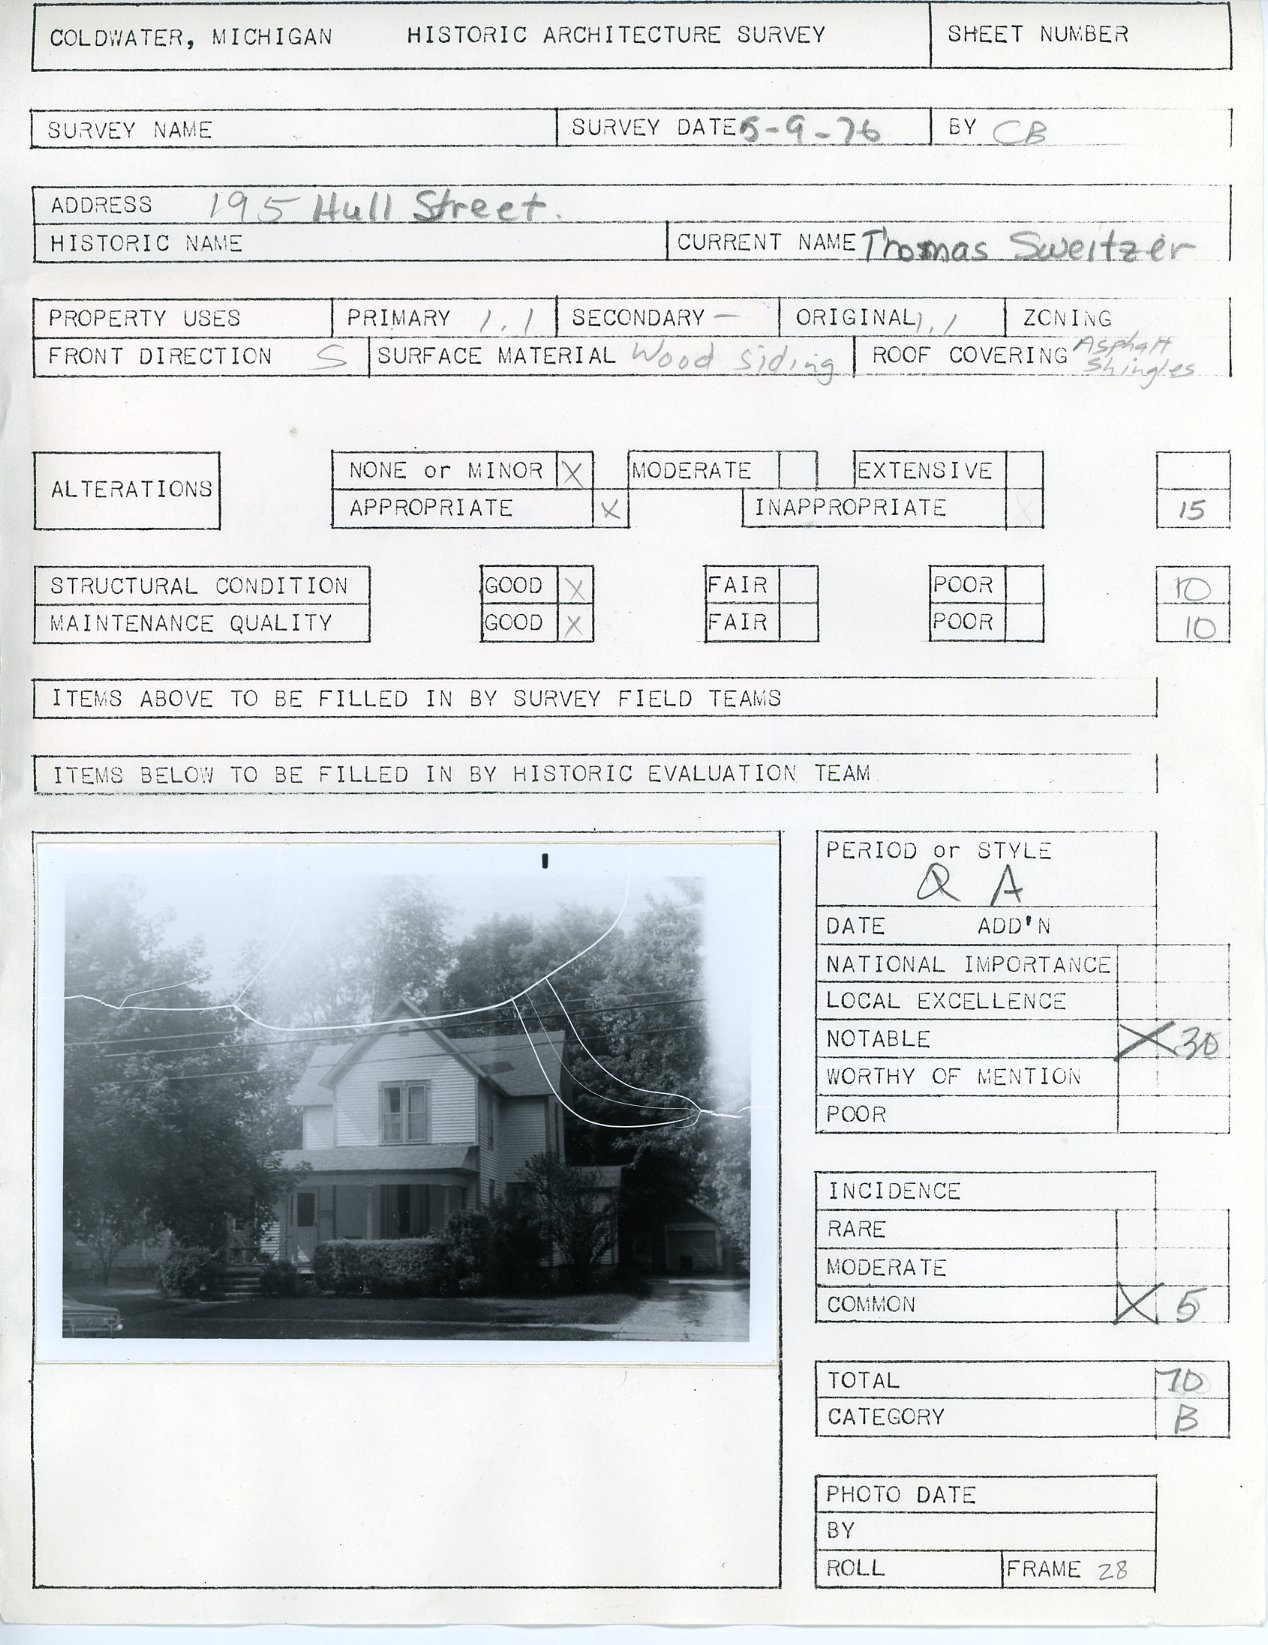 COLDWATER, MICHIGAN HISTORIC ARCHITECTURE SURVEY SHEET NUMBER
SURVEY NAME SURVEY DATE 5-9-76 BY CB
ADDRESS 195 Hull Street.
HISTORIC NAME CURRENT NAME Thomas Sweitzer
PROPERTY USES PRIMARY 1.1 SECONDARY — ORIGINAL 1.1 ZONING
FRONT DIRECTION S SURFACE MATERIAL Wood siding ROOF COVERING Asphalt Shingles
ALTERATIONS NONE or MINOR X MODERATE EXTENSIVE
APPROPRIATE X INAPPROPRIATE 15
STRUCTURAL CONDITION GOOD X FAIR POOR 10
MAINTENANCE QUALITY GOOD X FAIR POOR 10
ITEMS ABOVE TO BE FILLED IN BY SURVEY FIELD TEAMS
ITEMS BELOW TO BE FILLED IN BY HISTORIC EVALUATION TEAM
PERIOD or STYLE
Q A
DATE ADD'N
NATIONAL IMPORTANCE
LOCAL EXCELLENCE
NOTABLE X 30
WORTHY OF MENTION
POOR
INCIDENCE
RARE
MODERATE
COMMON X 5
TOTAL 70
CATEGORY B
PHOTO DATE
BY
ROLL FRAME 28